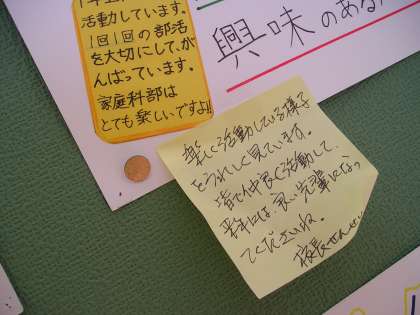 活動しています。
1回1回の部活
を大切にして、が
んばっています。
家庭科部は
とても楽しいですよ!!
興味のあるか
楽しく活動している様子
をうれしく見ています。
皆で仲良く活動して、
来年は、良い先輩になっ
てくださいね。
校長せんせい